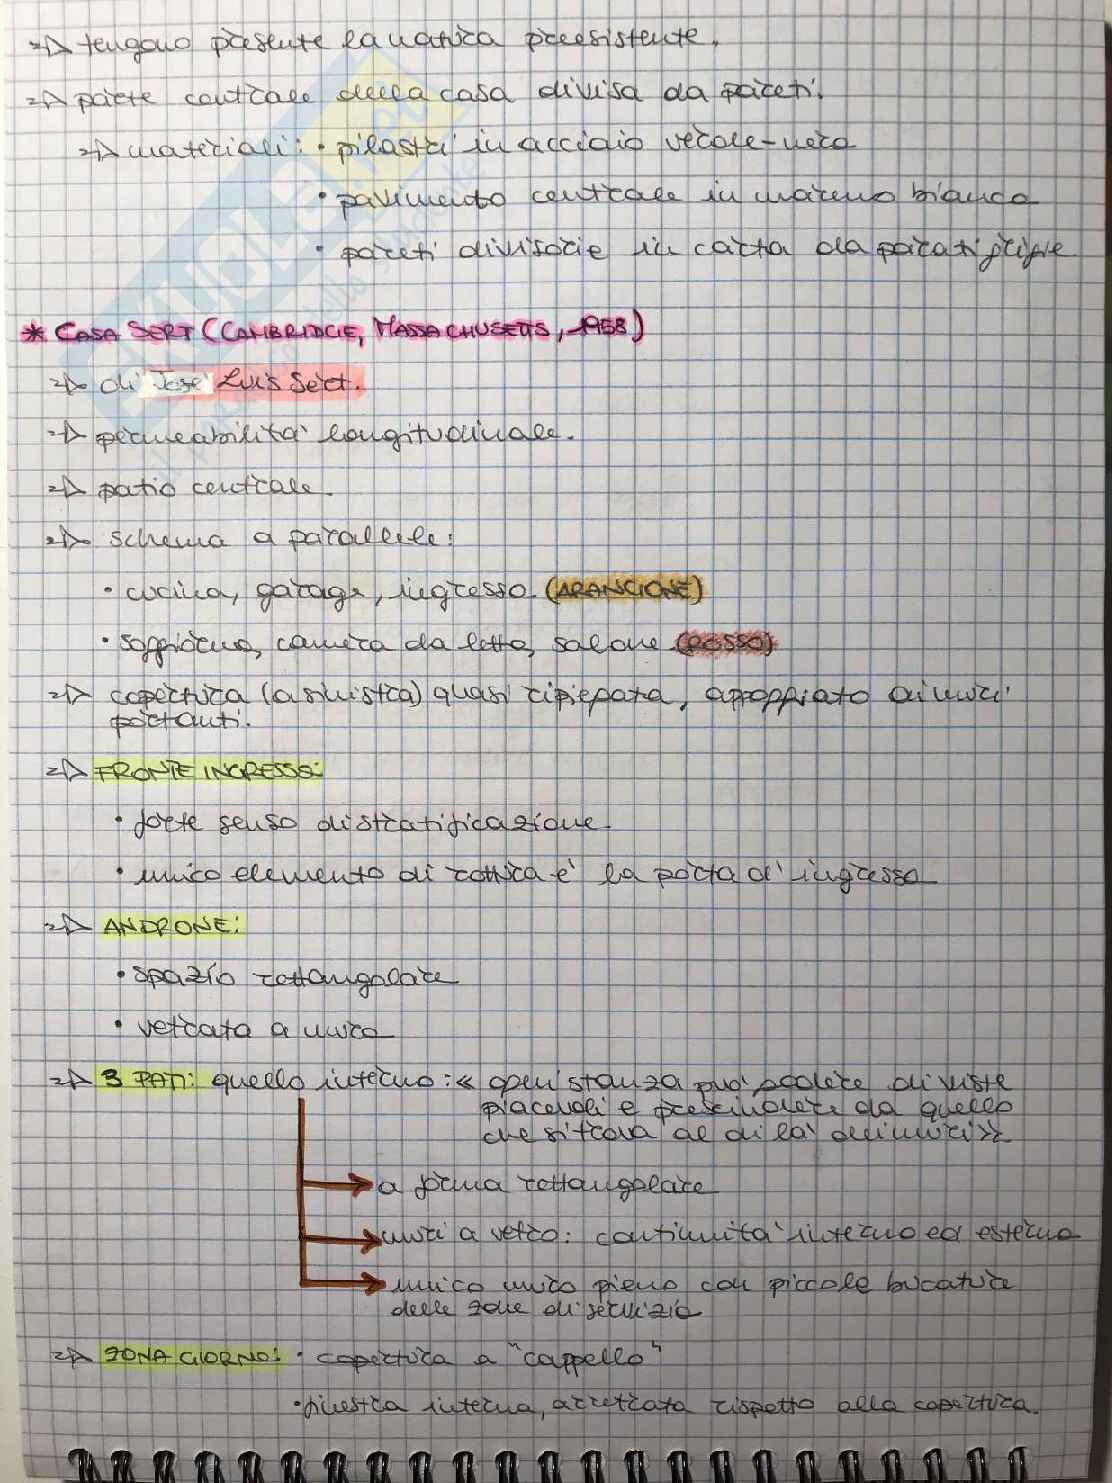 => tengono presente la natura preesistente.
=> parte centrale della casa divisa da pareti.
=> materiali: • pilastri in acciaio verde-nero
• pavimento centrale in marmo bianco
• pareti divisorie in carta da parati grigie
* CASA SERT (CAMBRIDGE, MASSACHUSETTS, 1958)
=> di José Luis Sert.
=> permeabilità longitudinale.
=> patio centrale.
=> schema a parallele:
• cucina, garage, ingresso (ARANCIONE)
• soggiorno, camera da letto, salone (ROSSO)
=> copertura (a sinistra) quasi ripiegata, appoggiato ai muri
portanti.
=> FRONTE INGRESSO:
• forte senso di stratificazione.
• unico elemento di rottura è la porta d'ingresso
=> ANDRONE:
• spazio rettangolare
• vetrata a muro
=> 3 PATI: quello interno: « ogni stanza può godere di viste
piacevoli e prescindere da quello
che si trova al di là dei muri»
a forma rettangolare
muri a vetro: continuità interno ed esterno
unico muro pieno con piccole bucature
delle zone di servizio
=> ZONA GIORNO: • copertura a "cappello"
• finestra interna, arretrata rispetto alla copertura.